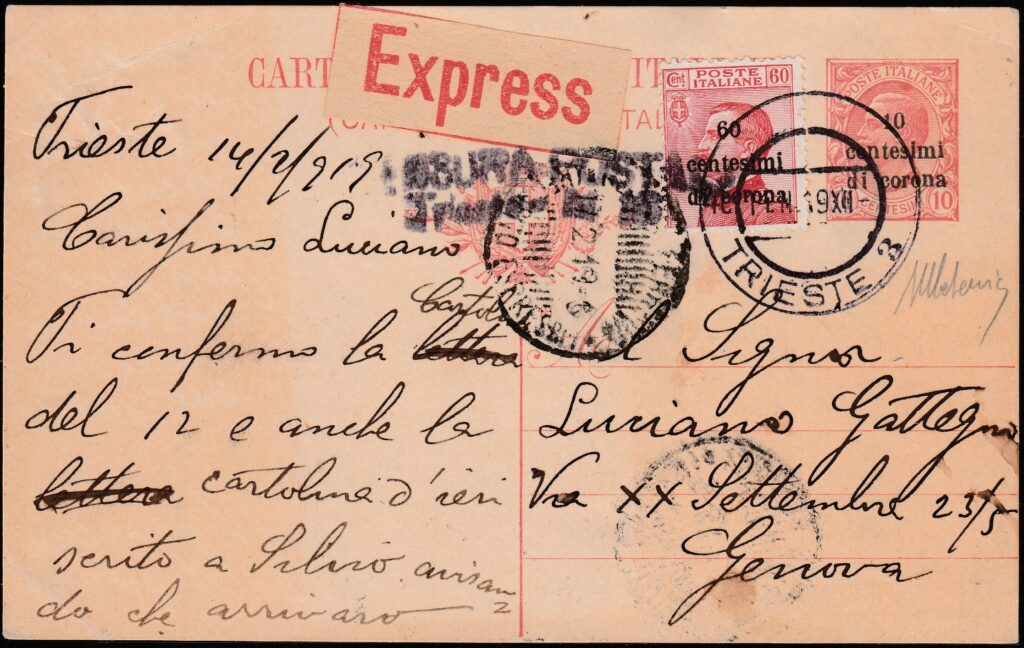 Express
Cent POSTE ITALIANE 60
60
centesimi
di corona
POSTE ITALIANE
10
centesimi
di corona
10
TRIESTE 3
Trieste 14/2/919
Carissimo Luciano
Ti confermo la lettera
del 12 e anche la
lettera cartolina d'ieri
scrito a Silvio avisan
do che arrivaro
Signor
Luciano Gattegno
Via XX Settembre 23/5
Genova